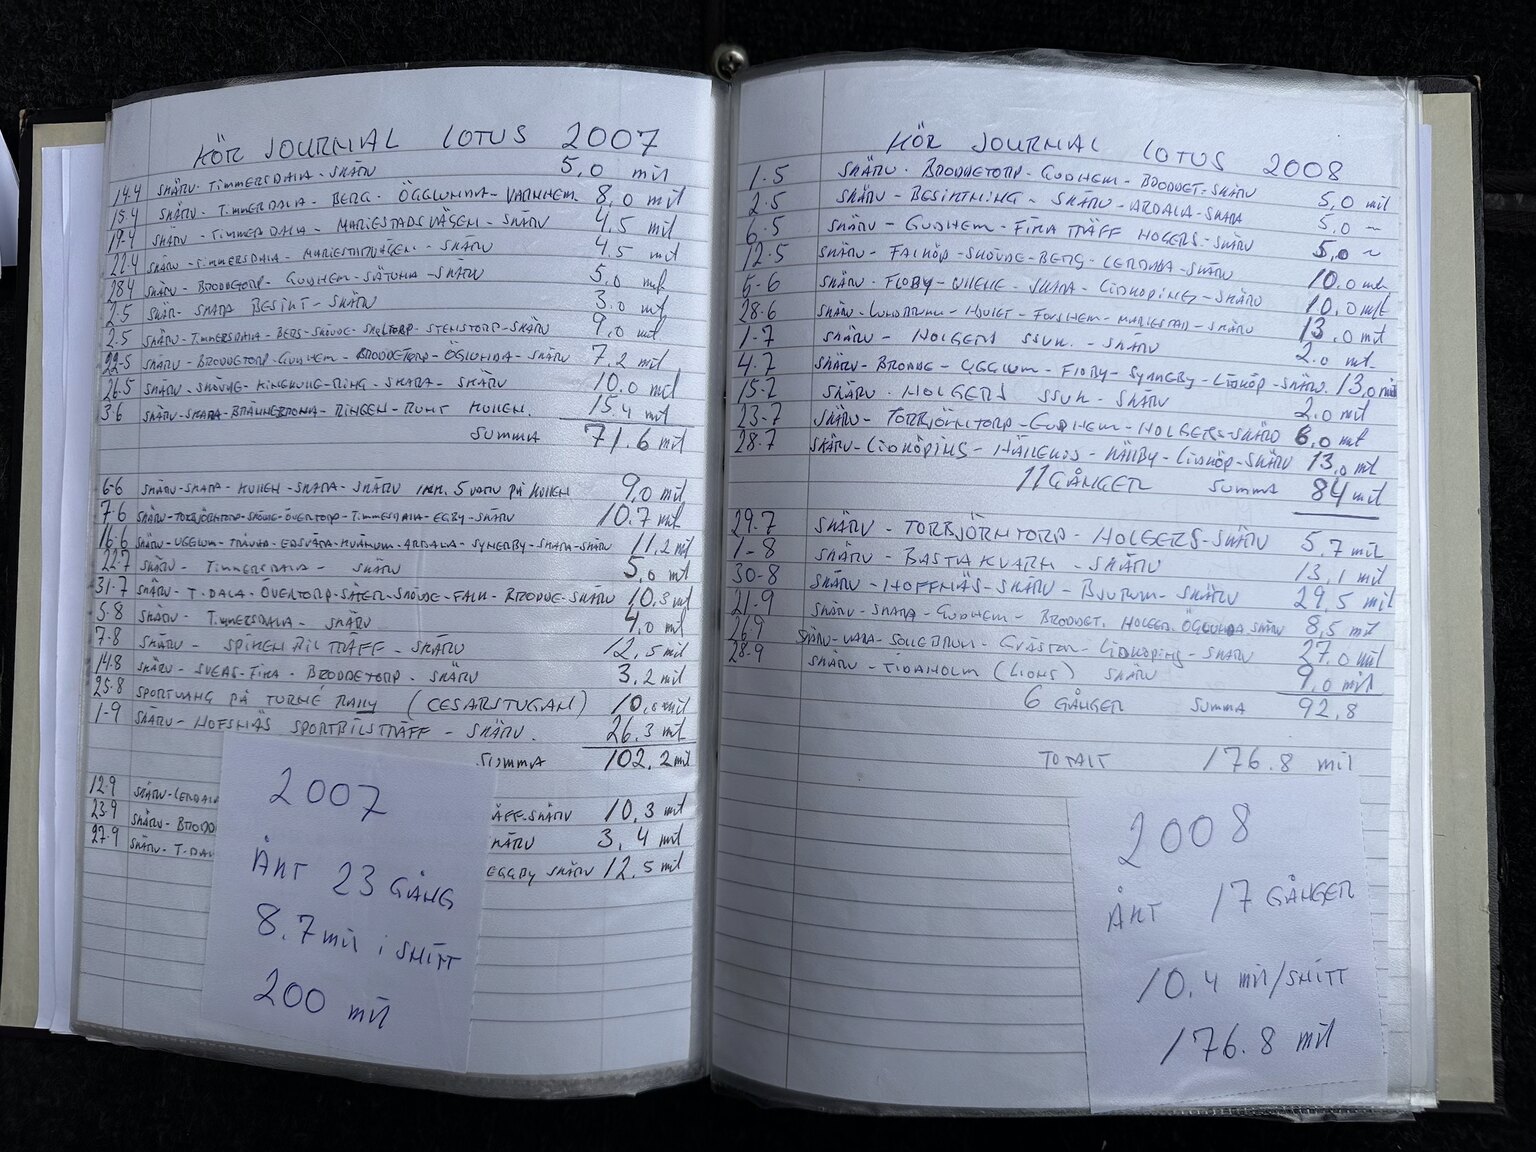 KÖR JOURNAL LOTUS 2007
14.4 SKÄRV - TIMMERSDALA - SKÄRV 5,0 mil
15.4 SKÄRV - TIMMERDALA - BERG - ÖGGLUNDA - VARNHEM 8,0 mil
19.4 SKÄRV - TIMMERDALA - MARIESTADSVÄGEN - SKÄRV 4,5 mil
22.4 SKÄRV - TIMMERSDALA - MARIESTADVÄGEN - SKÄRV 4.5 mil
28.4 SKÄRV - BRODDETORP - GUDHEM - SÄTUNA - SKÄRV 5,0 mil
2.5 SKÄR - SKARA BESIKT - SKÄRV 3.0 mil
2.5 SKÄRV - TIMMERSDALA - BERG - SKÖVDE - SKULTORP - STENSTORP - SKÄRV 9,0 mil
22.5 SKÄRV - BRODDETORP - GUDHEM - BRODDETORP - ÖGLUNDA - SKÄRV 7.2 mil
26.5 SKÄRV - SKÖVDE - KINEKULLE-RING - SKARA - SKÄRV 10.0 mil
3.6 SKÄRV - SKARA - - RINGEN - RUNT KULLEN. 15.4 mil
SUMMA 71.6 mil
6-6 SKÄRV - SKARA - KULLEN - SKARA - SKÄRV INK. 5 VARV PÅ KULLEN 9.0 mil
7.6 SKÄRV - TORBJÖRNTORP - SKÖVDE - ÖVERTORP - TIMMERSDALA - EGBY - SKÄRV 10.7 mil
16.6 SKÄRV - UGGLUM - TRÄVAD - EDSVÄRA - KVÄNUM - ARDALA - SYNERBY - SKARA - SKÄRV 11.2 mil
22.7 SKÄRV - TIMMERSDALA - SKÄRV 5,0 mil
31.7 SKÄRV - T.DALA - ÖVERTORP - SÄTER - SKÖVDE - FALK - BRODDE - SKÄRV 10.3 mil
5.8 SKÄRV - TIMMERSDALA - SKÄRV 4,0 mil
7.8 SKÄRV - SPIKEN BILTRÄFF - SKÄRV 12,5 mil
14.8 SKÄRV - SVEAS - FIKA - BRODDETORP - SKÄRV 3.2 mil
25.8 SPORTVAGN PÅ TURNÉ RALLY (CESARSTUGAN) 10,0 mil
1-9 SKÄRV - HOFSNÄS SPORTBILSTRÄFF - SKÄRV. 26.3 mil
SUMMA 102.2 mil
12.9 SKÄRV - LERDALA ÄFF - SKÄRV 10,3 mil
23.9 SKÄRV - BRODD KÄRV 3,4 mil
27.9 SKÄRV - T.DAL EGGBY SKÄRV 12.5 mil
2007
ÅKT 23 GÅNG
8.7 mil i SNITT
200 mil
KÖR JOURNAL LOTUS 2008
1.5 SKÄRV - BRODDETORP - GUDHEM - BRODDET - SKÄRV 5,0 mil
2.5 SKÄRV - BESIKTNING - SKÄRV - ARDALA - SKARA 5,0 ~
6.5 SKÄRV - GUDHEM - FIKA TRÄFF HOLGERS - SKÄRV 5,0 ~
12.5 SKÄRV - FALKÖP - SKÖVDE - BERG - LERDALA - SKÄRV 10.0 mil
5-6 SKÄRV - FLOBY - VILENE - SKARA - LIDKÖPING - SKÄRV 10.0 mil
28.6 SKÄRV - LUNDSBRUNN - - FORSHEM - MARIESTAD - SKÄRV 13.0 mil
1-7 SKÄRV - HOLGERS SSVK. - SKÄRV 2.0 mil
4.7 SKÄRV - BRODDE - UGGLUM - FLOBY - SYNNERBY - LIDKÖP - SKÄRV. 13,0 mil
15.7 SKÄRV - HOLGERS SSVK - SKÄRV 2.0 mil
23-7 SKÄRV - TORBJÖRNTORP - GUDHEM - HOLGERS - SKÄRV 6,0 mil
28.7 SKÄRV - LIDKÖPING - HÄLLEKIS - KÄLLBY - LIDKÖP - SKÄRV 13,0 mil
11 GÅNGER SUMMA 84 mil
29.7 SKÄRV - TORBJÖRNTORP - HOLGERS - SKÄRV 5.7 mil
1-8 SKÄRV - BASTA KVARN - SKÄRV 13,1 mil
30-8 SKÄRV - HOFFNÄS - SKÄRV - BJURUM - SKÄRV 29,5 mil
21.9 SKÄRV - SKARA - GUDHEM - BRODDET. HOLGER. ÖGLUNDA SKÄRV 8,5 mil
26.9 SKÄRV - VARA - SOLLEBRUN - GRÄSTOR - LIDKÖPING - SKÄRV 27.0 mil
28.9 SKÄRV - TIDAHOLM (LIONS) SKÄRV 9,0 mil
6 GÅNGER SUMMA 92,8
TOTALT 176.8 mil
2008
ÅKT 17 GÅNGER
10,4 mil/SNITT
176.8 mil